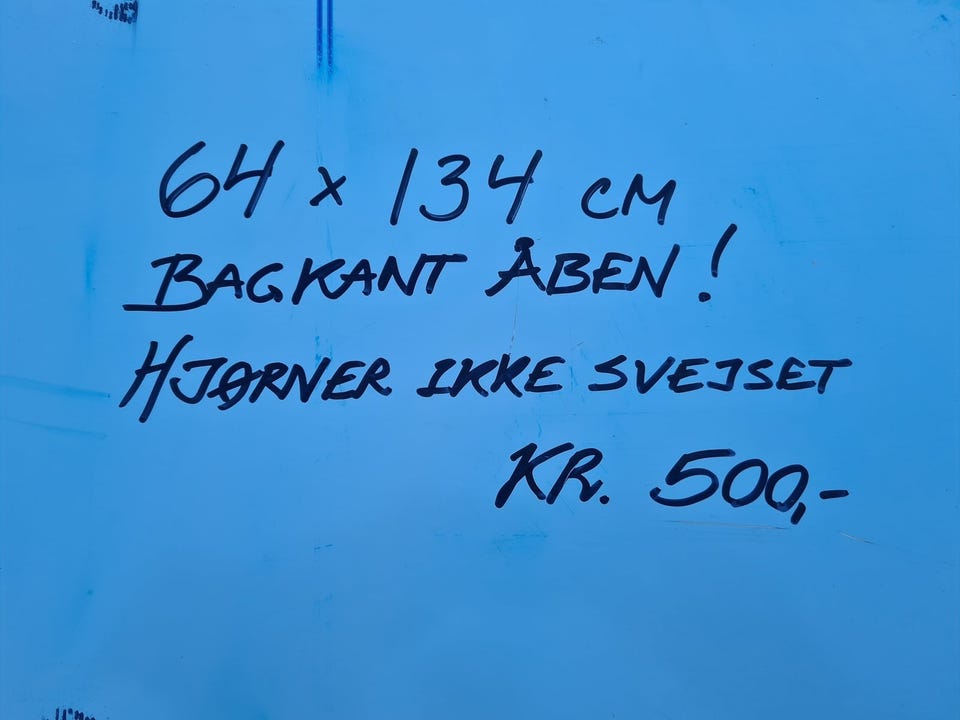 64 x 134 CM
BAGKANT ÅBEN!
HJØRNER IKKE SVEJSET
KR. 500,-